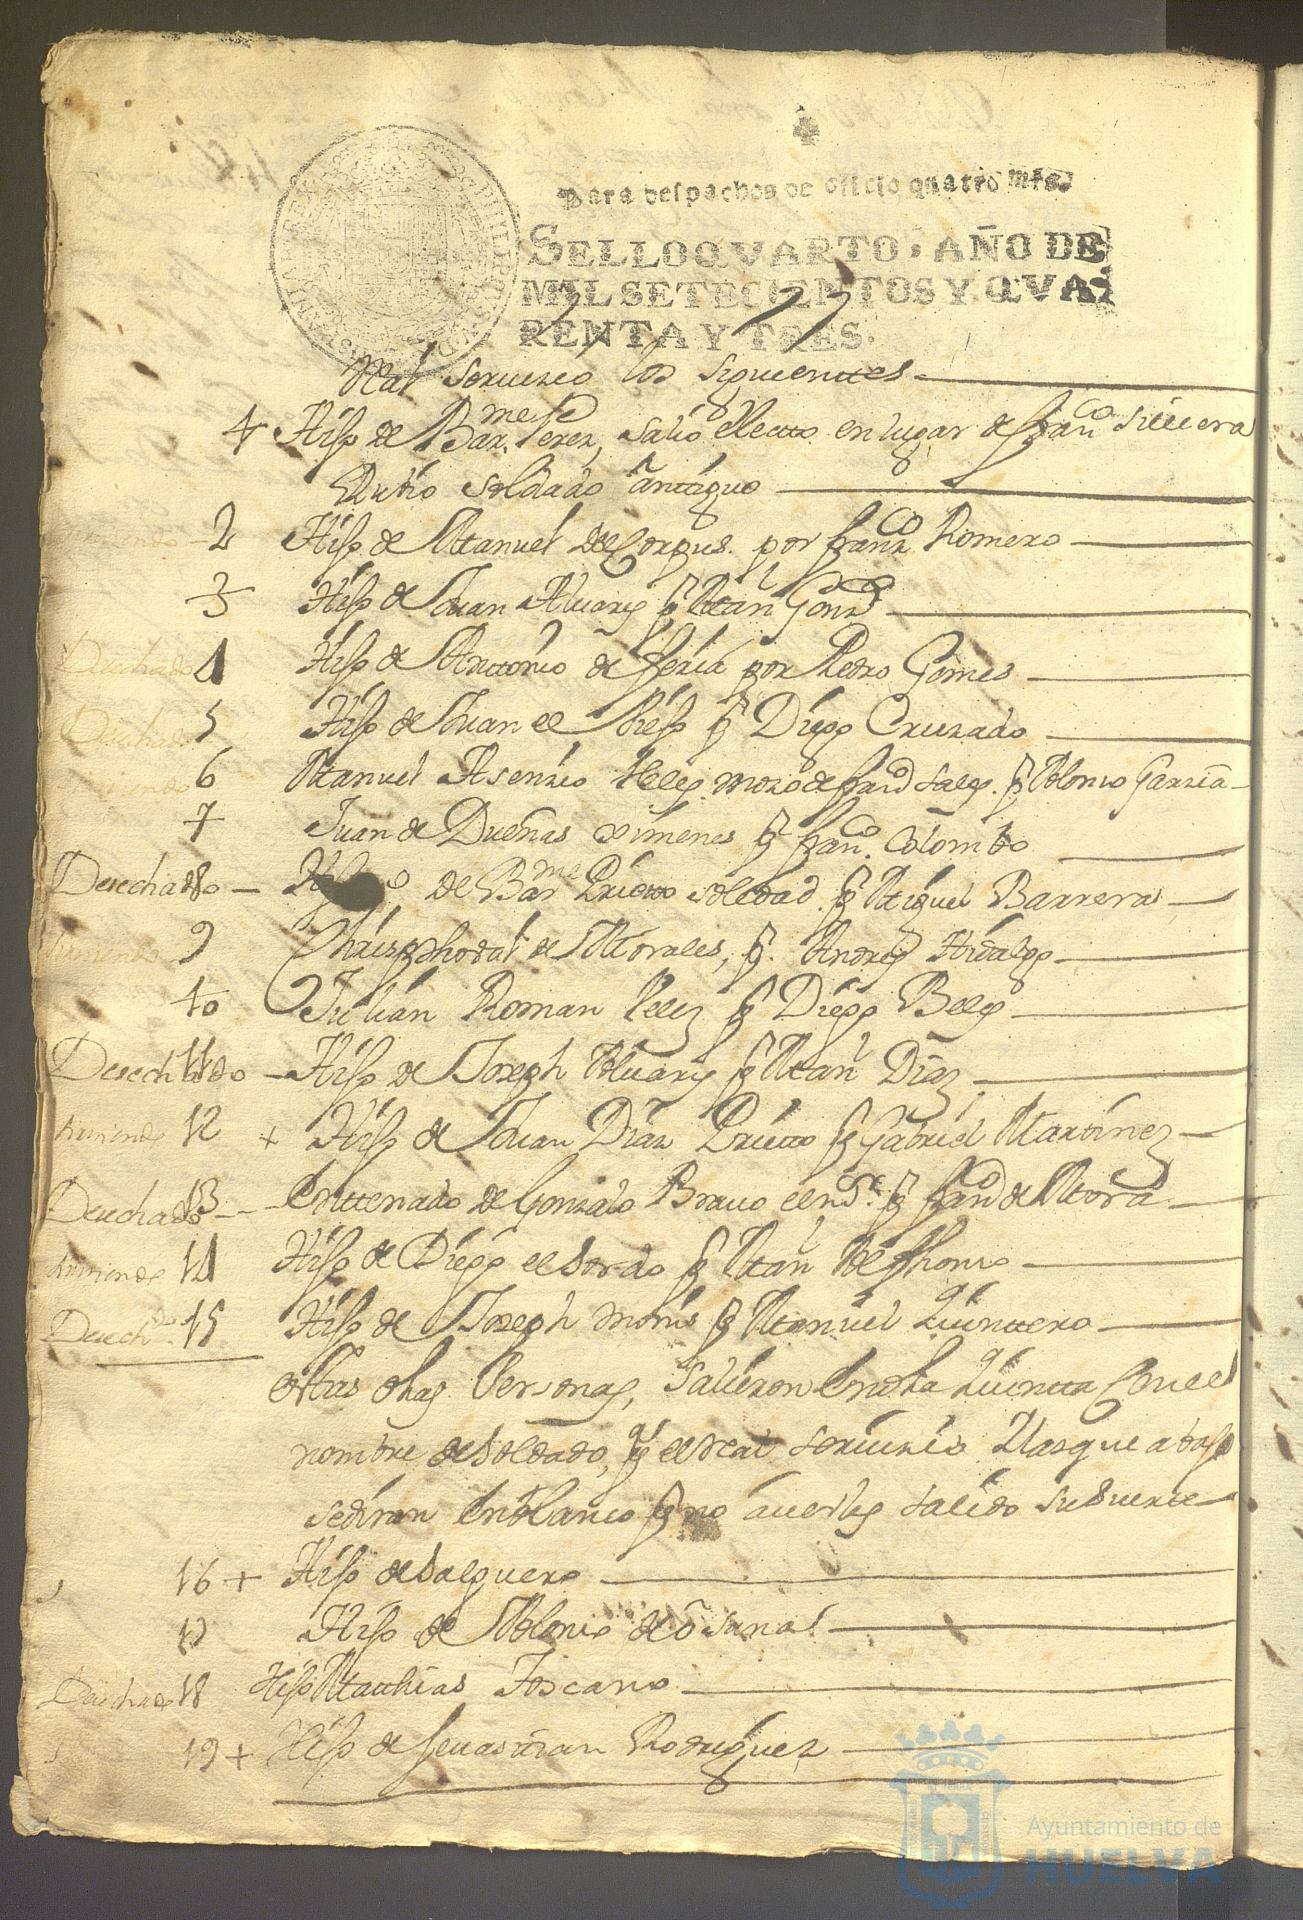 Para despachos de oficio quatro mrs.
SELLO QVARTO, AÑO DE
MIL SETECIENTOS Y QVA-
RENTA Y TRES.
Real seruizio los siguientes
1 Hijo de Barme Perez, salio electo en lugar de Franco Siluera
Rubio soldado antiguo
2 Hijo de Manuel de Corpus por Franco Romero
3 Hijo de Juan Aluares p Manl Gonz
Desechado 4 Hijo de Antonio de feria por Pedro Gomes
Desechado 5 Hijo de Juan el Biejo p Diego Cruzado
6 Manuel Asenzio Veles mozo de p Alonso Garzia
7 Juan de Dueñas ximenes p Franco Colombo
Desechado 8 Hijo de Barme Prietto soledad p Miguel Barrera
9 de Morales, p. Andres Hidalgo
10 Julian Roman Velez p Diego Beles
Desechado 11 Hijo de Joseph Aluares p Manl Diaz
12 + Hijo de Juan Diaz Prietto p Gabriel Martinez
Desechado 13 Enttenado de Gonzalo Brauo p Franco de Mora
14 Hijo de Diego el sordo p Manl
Desechdo 15 Hijo de Joseph p Manuel Quinttero
Personas, salieron en dha Quintta Con el
nombre de soldado, p el Real seruizio Y las que abajo
se diran en blanco p no auerles salido su suerte
16 + Hijo de Salguero
17 Hijo de Alonso de
Desechado 18 Hijo Matthias Toscano
19 + Hijo de Seuastian Rodriguez
Ayuntamiento de
HUELVA